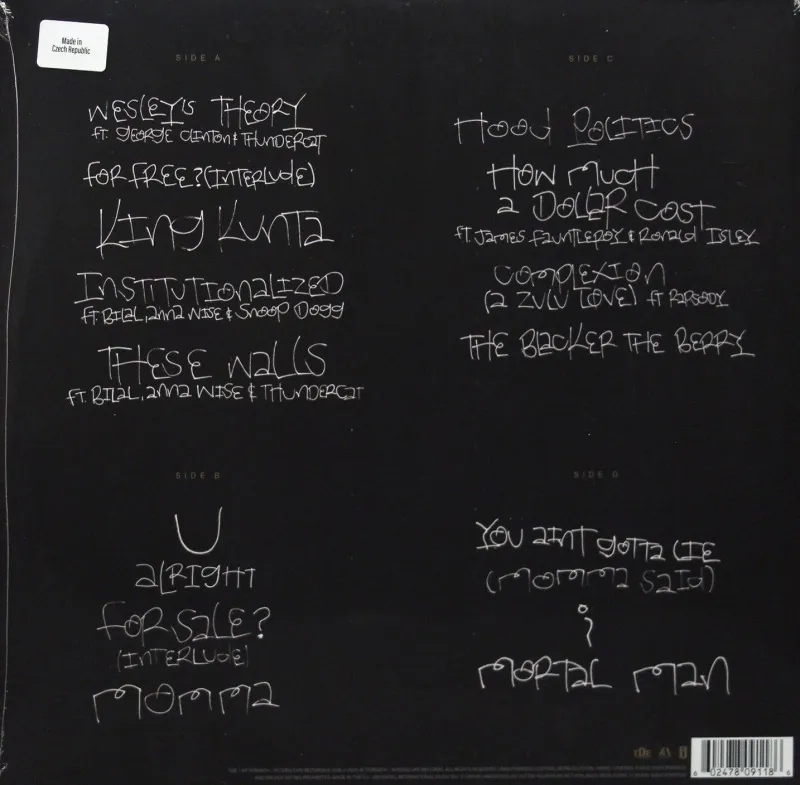 Made in
Czech Republic
SIDE A
WESLEY'S THEORY
ft. GEORGE CLINTON & THUNDERCAT
FOR FREE? (INTERLUDE)
KING KUNTA
INSTITUTIONALIZED
ft. BILAL, ANNA WISE & SNOOP DOGG
THESE WALLS
FT. BILAL, ANNA WISE & THUNDERCAT
SIDE B
U
ALRIGHT
FOR SALE?
(INTERLUDE)
MOMMA
SIDE C
HOOD POLITICS
HOW MUCH
A DOLLAR COST
ft. JAMES FAUNTLEROY & RONALD ISLEY
COMPLEXION
(A ZULU LOVE) ft RAPSODY
THE BLACKER THE BERRY
SIDE D
YOU AINT GOTTA LIE
(MOMMA SAID)
i
MORTAL MAN
TDE
6 02478 09118 6